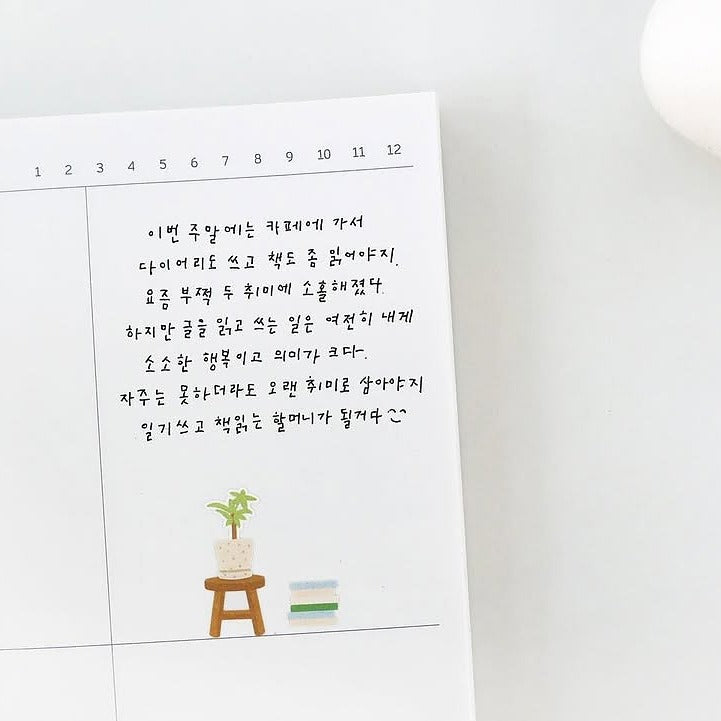 1 2 3 4 5 6 7 8 9 10 11 12
이번 주말에는 카페에 가서
다이어리도 쓰고 책도 좀 읽어야지.
요즘 부쩍 두 취미에 소홀해졌다.
하지만 글을 읽고 쓰는 일은 여전히 내게
소소한 행복이고 의미가 크다.
자주는 못하더라도 오랜 취미로 삼아야지
일기쓰고 책읽는 할머니가 될거다